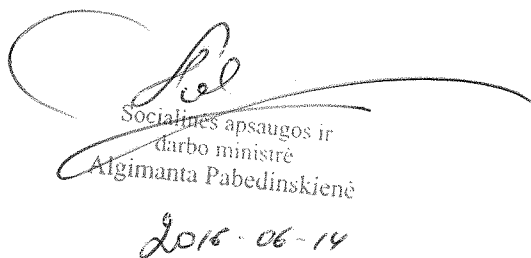 Socialinės apsaugos ir
darbo ministrė
Algimanta Pabedinskienė
2016-06-14